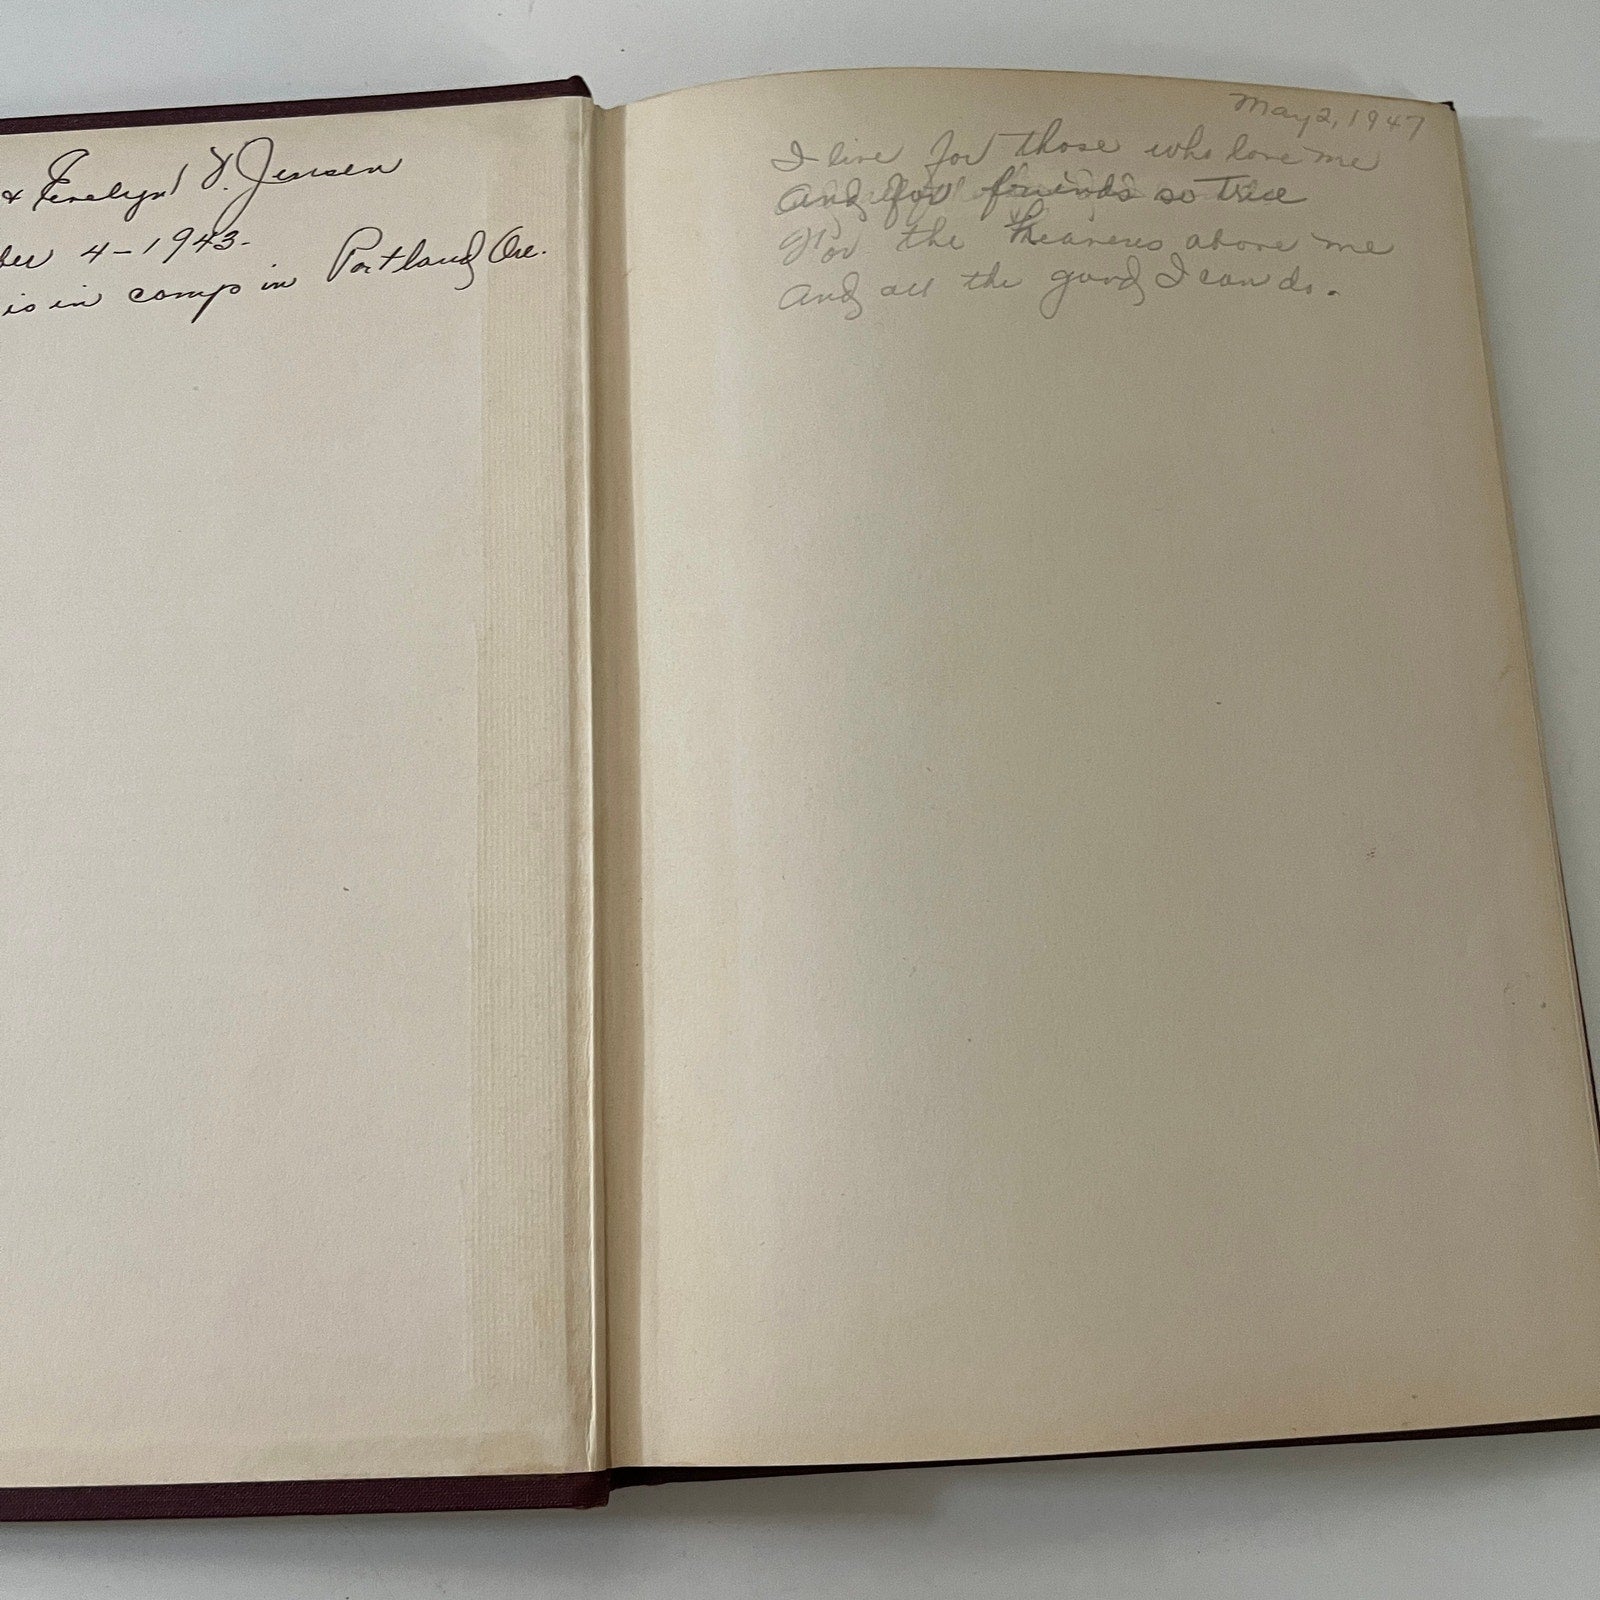 & Evelyn V. Jensen
ber 4-1943-
is in camp in Portland Ore.
May 2, 1947
I live for those who love me
And for friends so true
For the Heavens above me
And all the good I can do.